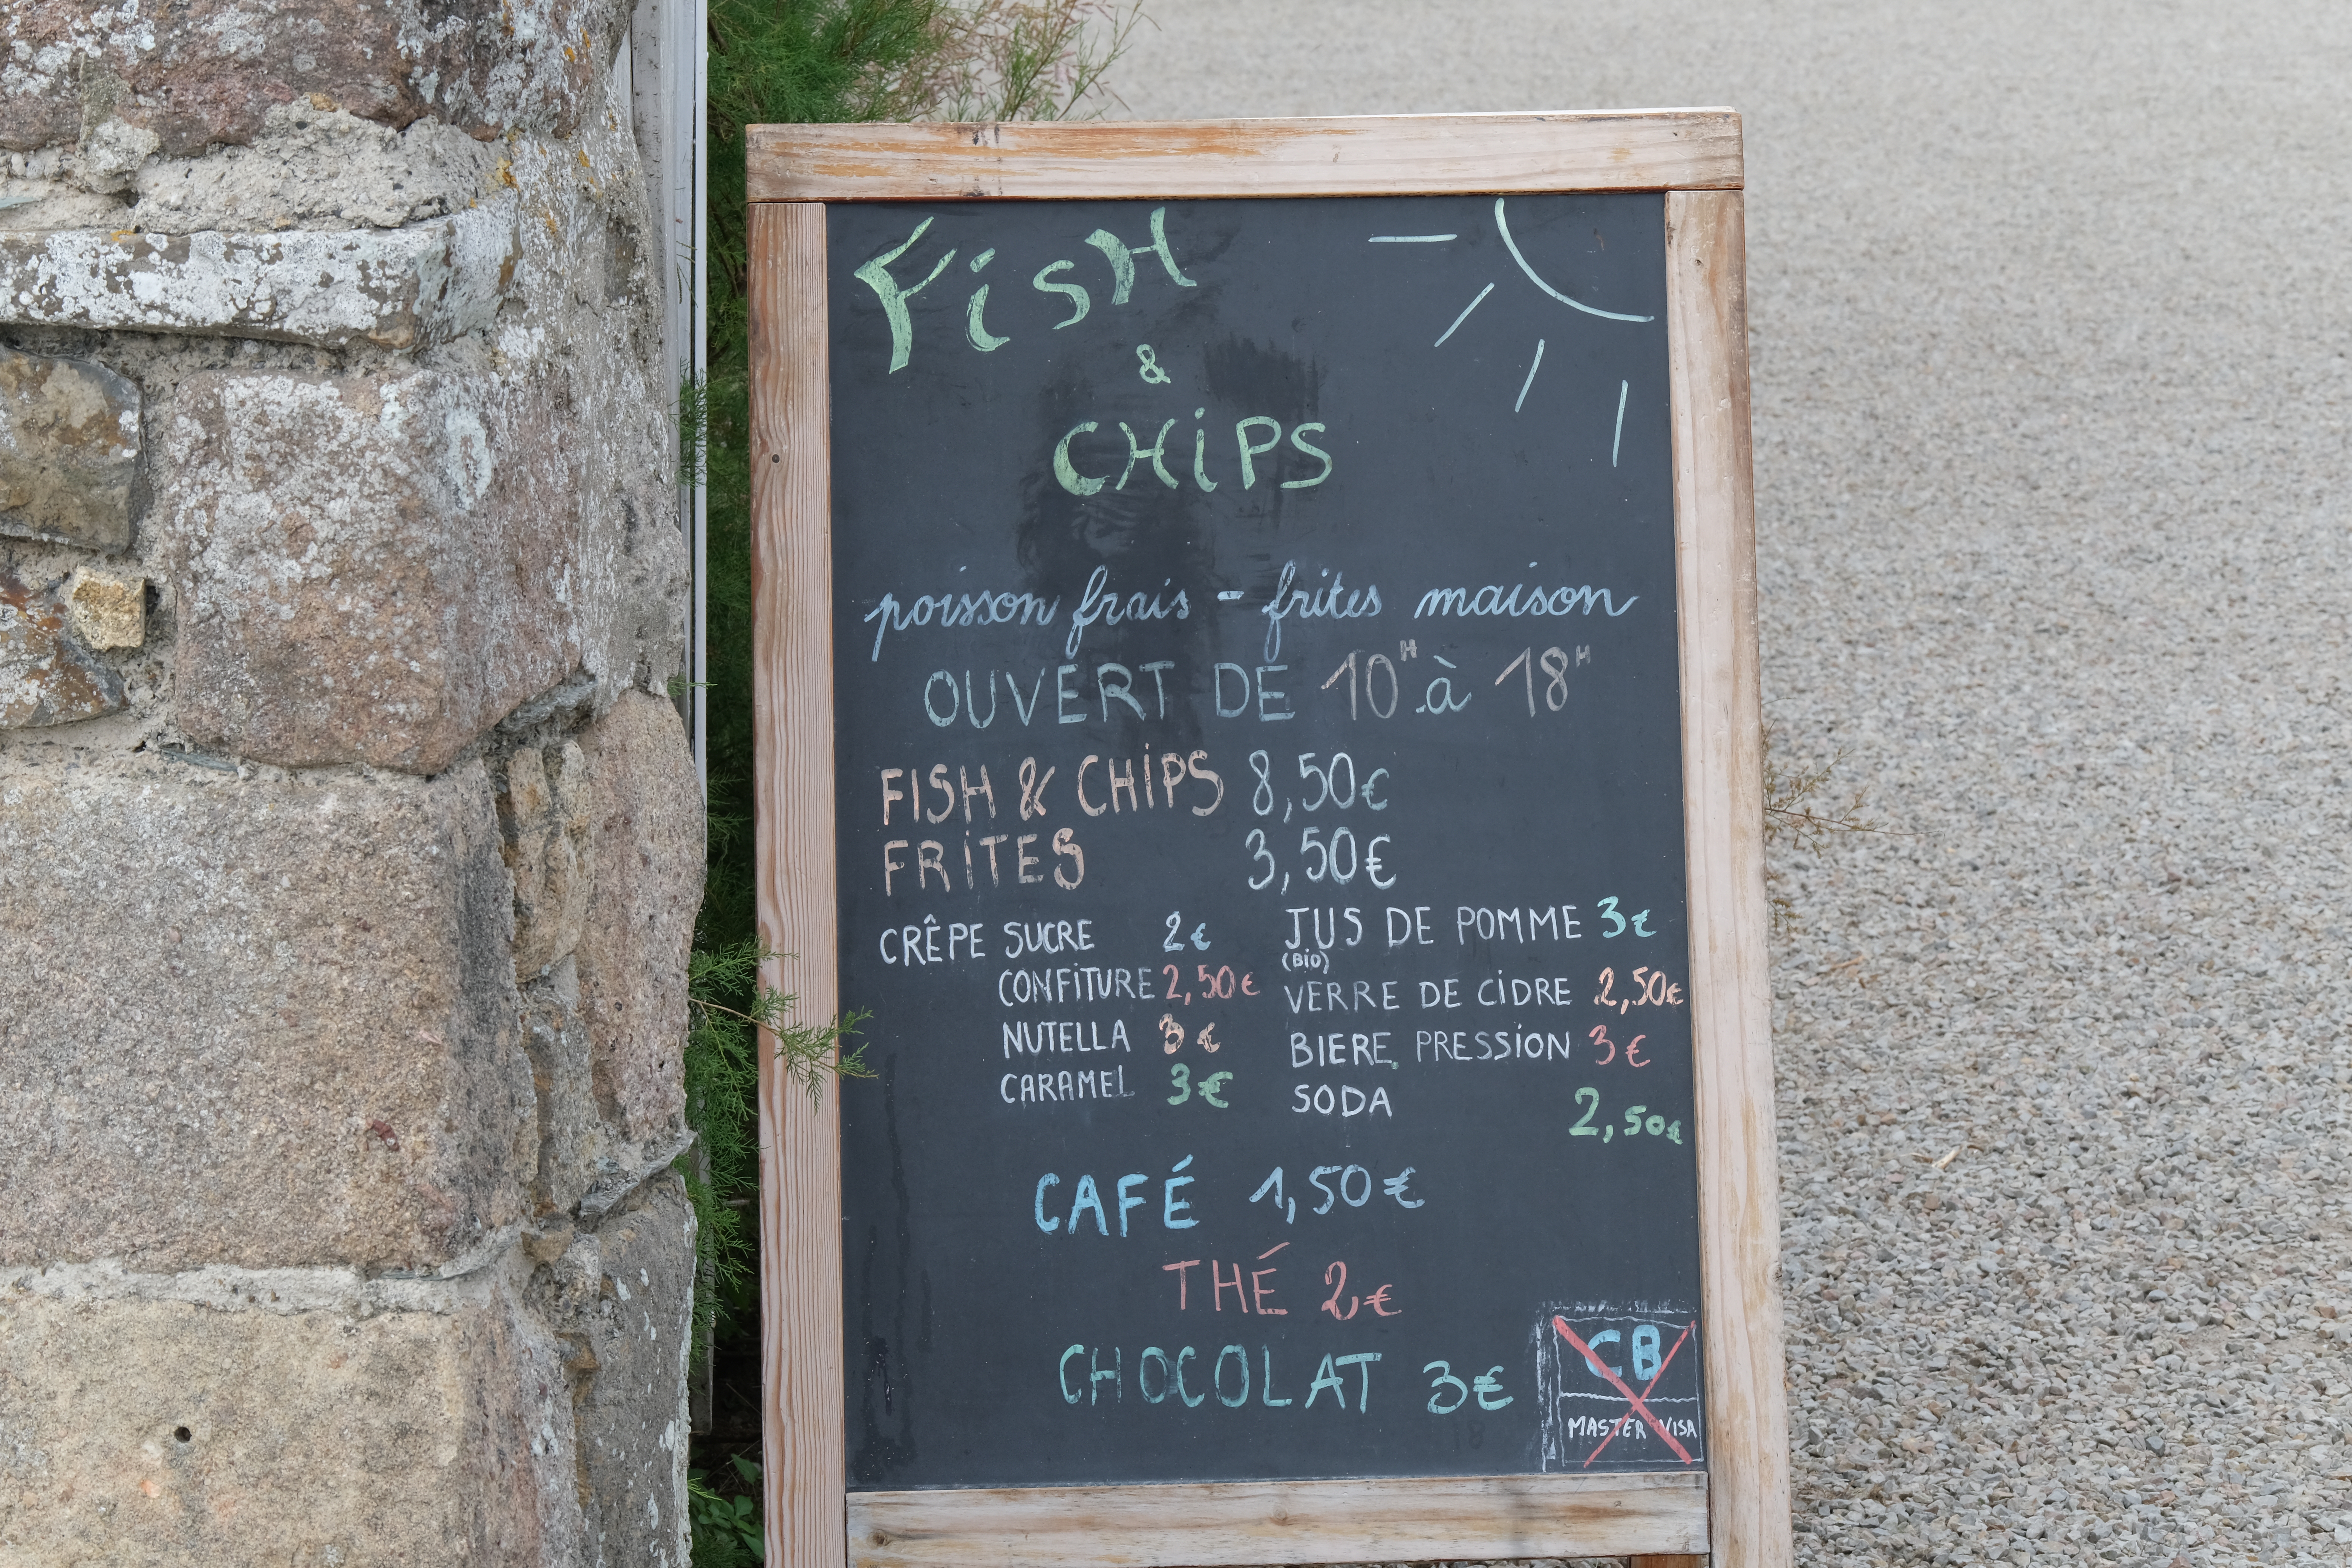 FisH
&
CHiPS
poisson frais - frites maison
OUVERT DE 10H à 18H
FISH & CHIPS 8,50€
FRITES 3,50€
CRÊPE SUCRE 2€
CONFITURE 2,50€
NUTELLA 3€
CARAMEL 3€
JUS DE POMME 3€
(BiO)
VERRE DE CIDRE 2,50€
BIERE PRESSION 3€
SODA 2,50€
CAFÉ 1,50€
THÉ 2€
CHOCOLAT 3€
CB
MASTER VISA